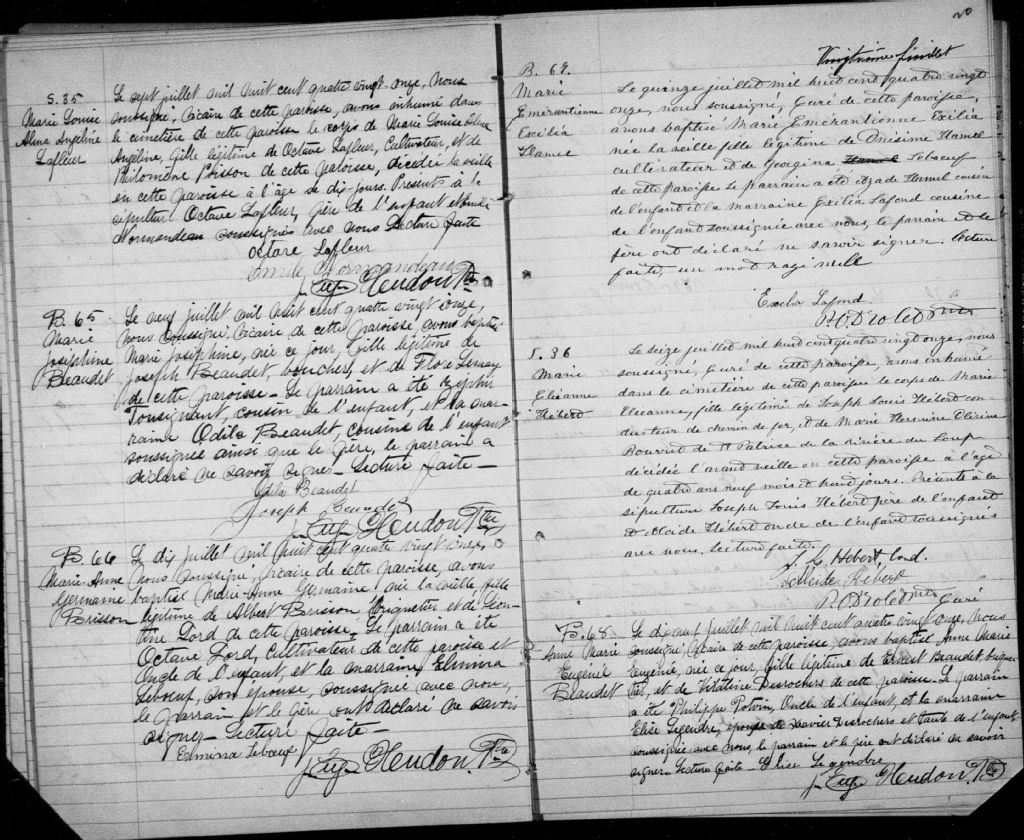 S. 35
Marie Louise
Alma Angéline
Lafleur
Le sept juillet mil huit cent quatre vingt-onze, nous
soussigné, vicaire de cette paroisse, avons inhumé dans
le cimetière de cette paroisse le corps de Marie Louise Alma
Angéline, fille légitime de Octave Lafleur, Cultivateur, et de
Philomène Poisson de cette paroisse, décédée la veille
en cette paroisse à l'âge de dix-jours. Présents à la
sépulture Octave Lafleur, père de l'enfant et Emile
Normandeau soussignés avec nous Lecture faite
Octave Lafleur
Emile Normandeau
J. Eug. Heudon Ptre
B. 65
Marie
Joséphine
Beaudet
Le neuf juillet mil huit cent quatre vingt onze,
nous soussigné, vicaire de cette paroisse, avons baptisé
Marie Joséphine, née ce jour, fille légitime de
Joseph Beaudet, boucher, et de Flore Lemay
de cette paroisse - Le parrain a été Zéphir
Tousignant, cousin de l'enfant, et la mar-
raine Odila Beaudet, cousine de l'enfant
soussignée ainsi que le père, le parrain a
déclaré ne savoir signer - Lecture faite -
Odila Beaudet
Joseph Beaudet
J. Eug. Heudon Ptre
B. 66
Marie-Anne
Germaine
Brisson
Le dix juillet mil huit cent quatre vingt onze,
nous soussigné, vicaire de cette paroisse, avons
baptisé Marie-Anne Germaine, née la veille, fille
légitime de Albert Brisson briquetier et de Léon-
tine Lord de cette paroisse, Le parrain a été
Octave Lord, cultivateur de cette paroisse et
Oncle de l'enfant, et la marraine Elmina
Leboeuf, son épouse, soussignée avec nous,
le parrain et le père ont déclaré ne savoir
signer - Lecture faite -
Elmina Leboeuf
J. Eug. Heudon Ptre
20
Vingtième feuillet
B. 67.
Marie
Emérantienne
Exilia
Hamel
Le quinze juillet mil huit cent quatre vingt
onze, nous soussigné, Curé de cette paroisse,
avons baptisé Marie Emérantienne Exilia
née la veille fille légitime de Onisime Hamel
cultivateur et de Georgina Hamel Leboeuf
de cette paroisse Le parrain a été Hamel cousin
de l'enfant et la marraine Exilia Lafond cousine
de l'enfant soussignée avec nous, le parrain et le
père ont déclaré ne savoir signer. Lecture
faite, un mot rayé nulle
Exilia Lafond
S. 36
Marie
Elianne
Hébert
Le seize juillet mil huit cent quatre vingt onze, nous
soussigné, Curé de cette paroisse, avons inhumé
dans le cimetière de cette paroisse le corps de Marie
Elieanne, fille légitime de Joseph Louis Hébert con-
ducteur de chemin de fer, et de Marie Hermine
de St Patrice de la Rivière du Loup
décédée l'avant veille en cette paroisse à l'âge
de quatre ans neuf mois et huit jours. Présents à la
sépulture Joseph Louis Hébert père de l'enfant
et Hébert oncle de l'enfant soussignés
avec nous. Lecture faite.
J. L. Hebert, Cond.
Hébert
Curé
B. 68.
Anne Marie
Eugénie
Beaudet
Le dix neuf juillet mil huit cent quatre vingt onze, nous
soussigné, vicaire de cette paroisse, avons baptisé Anne Marie
Eugénie, née ce jour, fille légitime de Ernest Beaudet, brique-
tier, et de Vitaline Desrochers de cette paroisse - Le parrain
a été Philippe Potvin, Oncle de l'enfant, et la marraine
Elise Legendre, épouse de Xavier Desrochers et tante de l'enfant,
soussignée avec nous, le parrain et le père ont déclaré ne savoir
signer - Lecture faite - Elise Legendre
J. Eug. Heudon Ptre